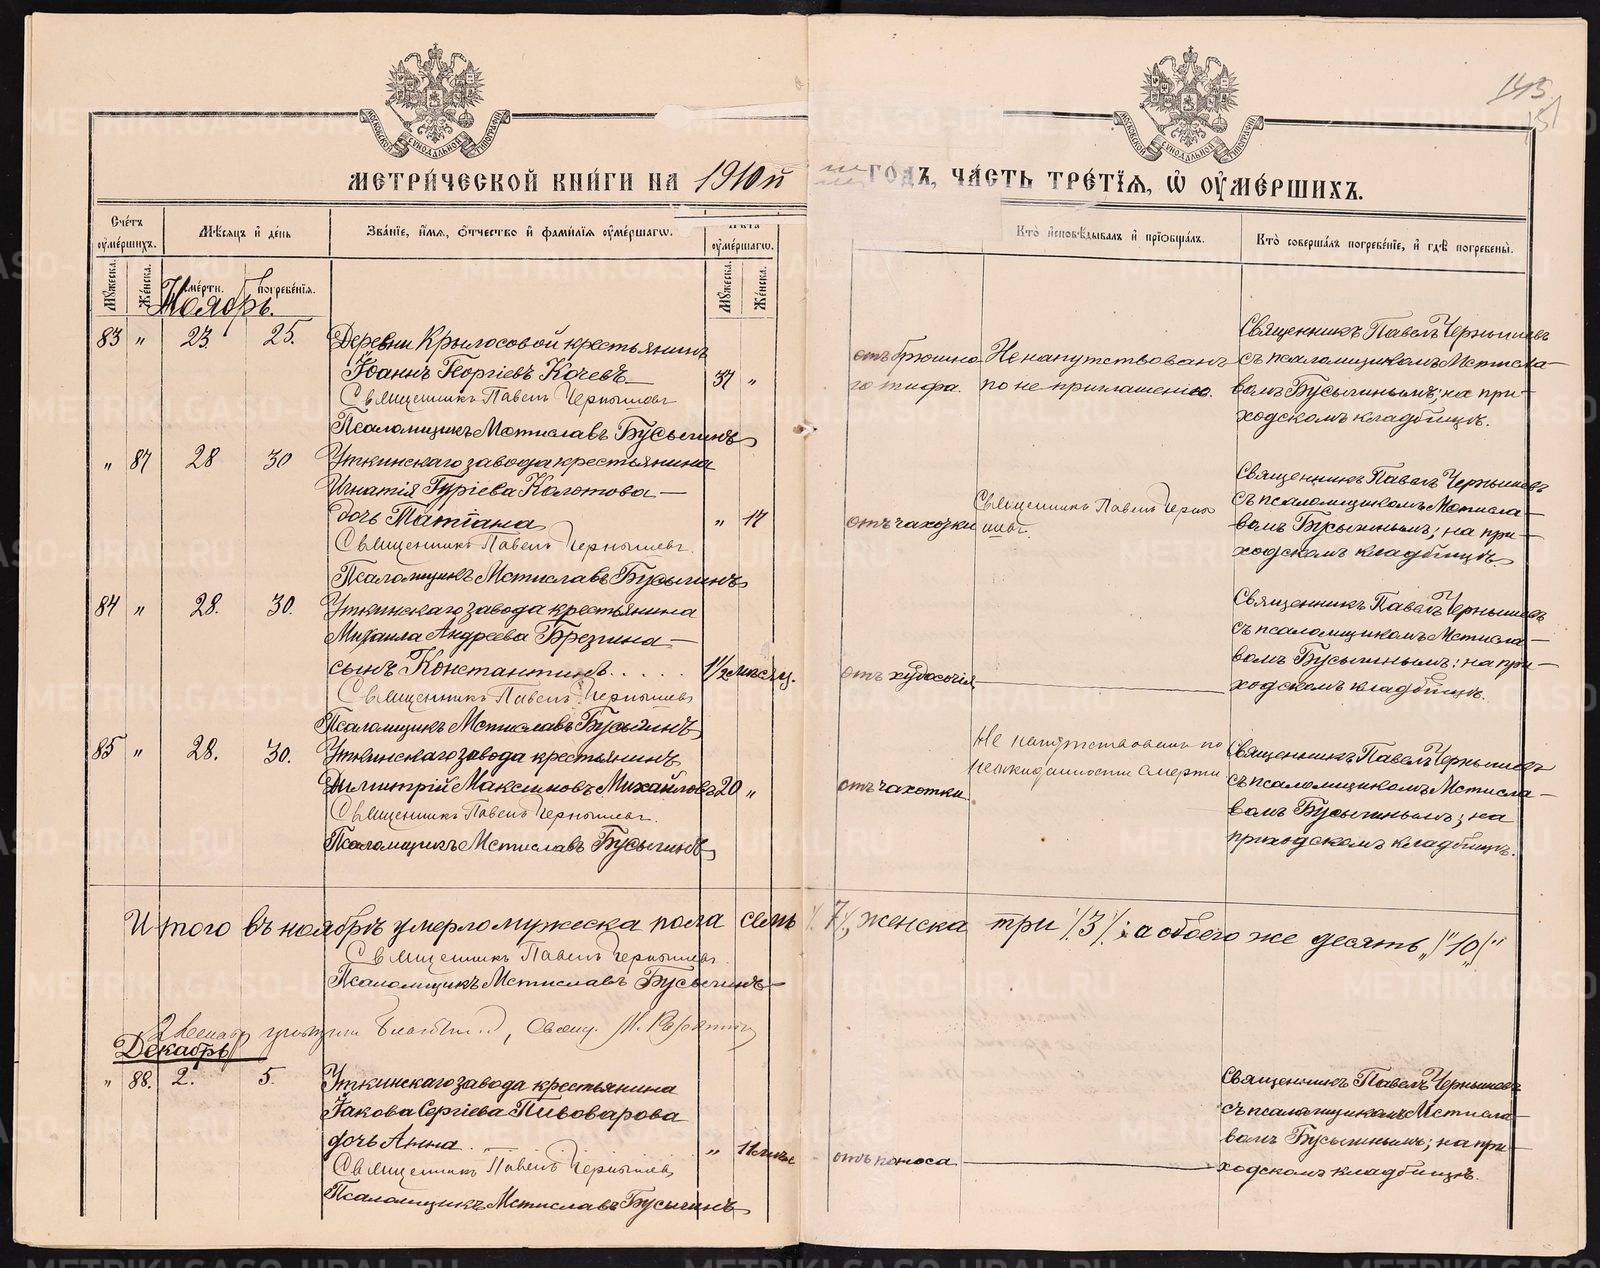 143
151
МЕТРИ́ЧЕСКОЙ КНИ́ГИ НА 1910й ГОДЪ, ЧА́СТЬ ТРЕ́ТІѦ, Ѡ҆ ОУ҆МЕ́РШИХЪ.
Сче́тъ оу҆ме́ршихъ.
Мѣ́сѧцъ и҆ де́нь
Зва́нїе, и҆́мѧ, ѻ҆́тчество и҆ фами́лїѧ оу҆ме́ршагѡ.
Лѣ́та оу҆ме́ршагѡ.
Кто̀ и҆сповѣ́дывалъ и҆ прїѡбща́лъ.
Кто̀ соверша́лъ погребе́нїе, и҆ гдѣ̀ погребены̀.
Мꙋ́жеска.
Же́нска.
сме́рти.
погребе́нїѧ.
Мꙋ́жеска.
Же́нска.
Ноябрь.
83 " 23. 25.
Деревни Крылосовой крестьянинъ
Іоаннъ Георгіевъ Кочевъ
37 "
Священникъ Павелъ Чернышевъ
Псаломщикъ Мстиславъ Бусыгинъ
отъ брюшно
го тифа.
Не напутствованъ
по не приглашенію.
Священникъ Павелъ Чернышевъ
съ псаломщикомъ Мстисла-
вомъ Бусыгинымъ; на при-
ходскомъ кладбищѣ.
" 87 28 30
Уткинскаго завода крестьянина
Игнатія Гуріева Колотова
дочь Татіана
" 17
Священникъ Павелъ Чернышевъ.
Псаломщикъ Мстиславъ Бусыгинъ
отъ чахотки
Священникъ Павелъ Черны
шевъ.
Священникъ Павелъ Чернышевъ
съ псаломщикомъ Мстисла-
вомъ Бусыгинымъ; на при-
ходскомъ кладбищѣ
84 " 28. 30.
Уткинскаго завода крестьянина
Михаила Андреева Брезгина
сынъ Константинъ.....
1½ мѣсяц.
Священникъ Павелъ Чернышевъ
Псаломщикъ Мстиславъ Бусыгинъ
отъ худосочія
Священникъ Павелъ Чернышевъ
съ псаломщикомъ Мстисла-
вомъ Бусыгинымъ; на при-
ходскомъ кладбищѣ.
85 " 28. 30.
Уткинскаго завода крестьянинъ
Димитрій Максимовъ Михайловъ
20 "
Священникъ Павелъ Чернышевъ.
Псаломщикъ Мстиславъ Бусыгинъ
отъ чахотки
Не напутствованъ по
неожиданности смерти
Священникъ Павелъ Чернышевъ
съ псаломщикомъ Мстисла-
вомъ Бусыгинымъ; на
приходскомъ кладбищѣ.
Итого въ ноябрѣ умерло мужеска пола семь /.7./, женска три /.3./; а обоего же десять „/"10„/"
Священникъ Павелъ Чернышевъ.
Псаломщикъ Мстиславъ Бусыгинъ
Декабрь
" 88. 2. 5.
Уткинскаго завода крестьянина
Іакова Сергіева Пивоварова
дочь Анна.
Священникъ Павелъ Чернышевъ
Псаломщикъ Мстиславъ Бусыгинъ
отъ поноса
Священникъ Павелъ Чернышевъ
съ псаломщикомъ Мстисла-
вомъ Бусыгинымъ; на при-
ходскомъ кладбищѣ.
METRIKI.GASO-URAL.RU